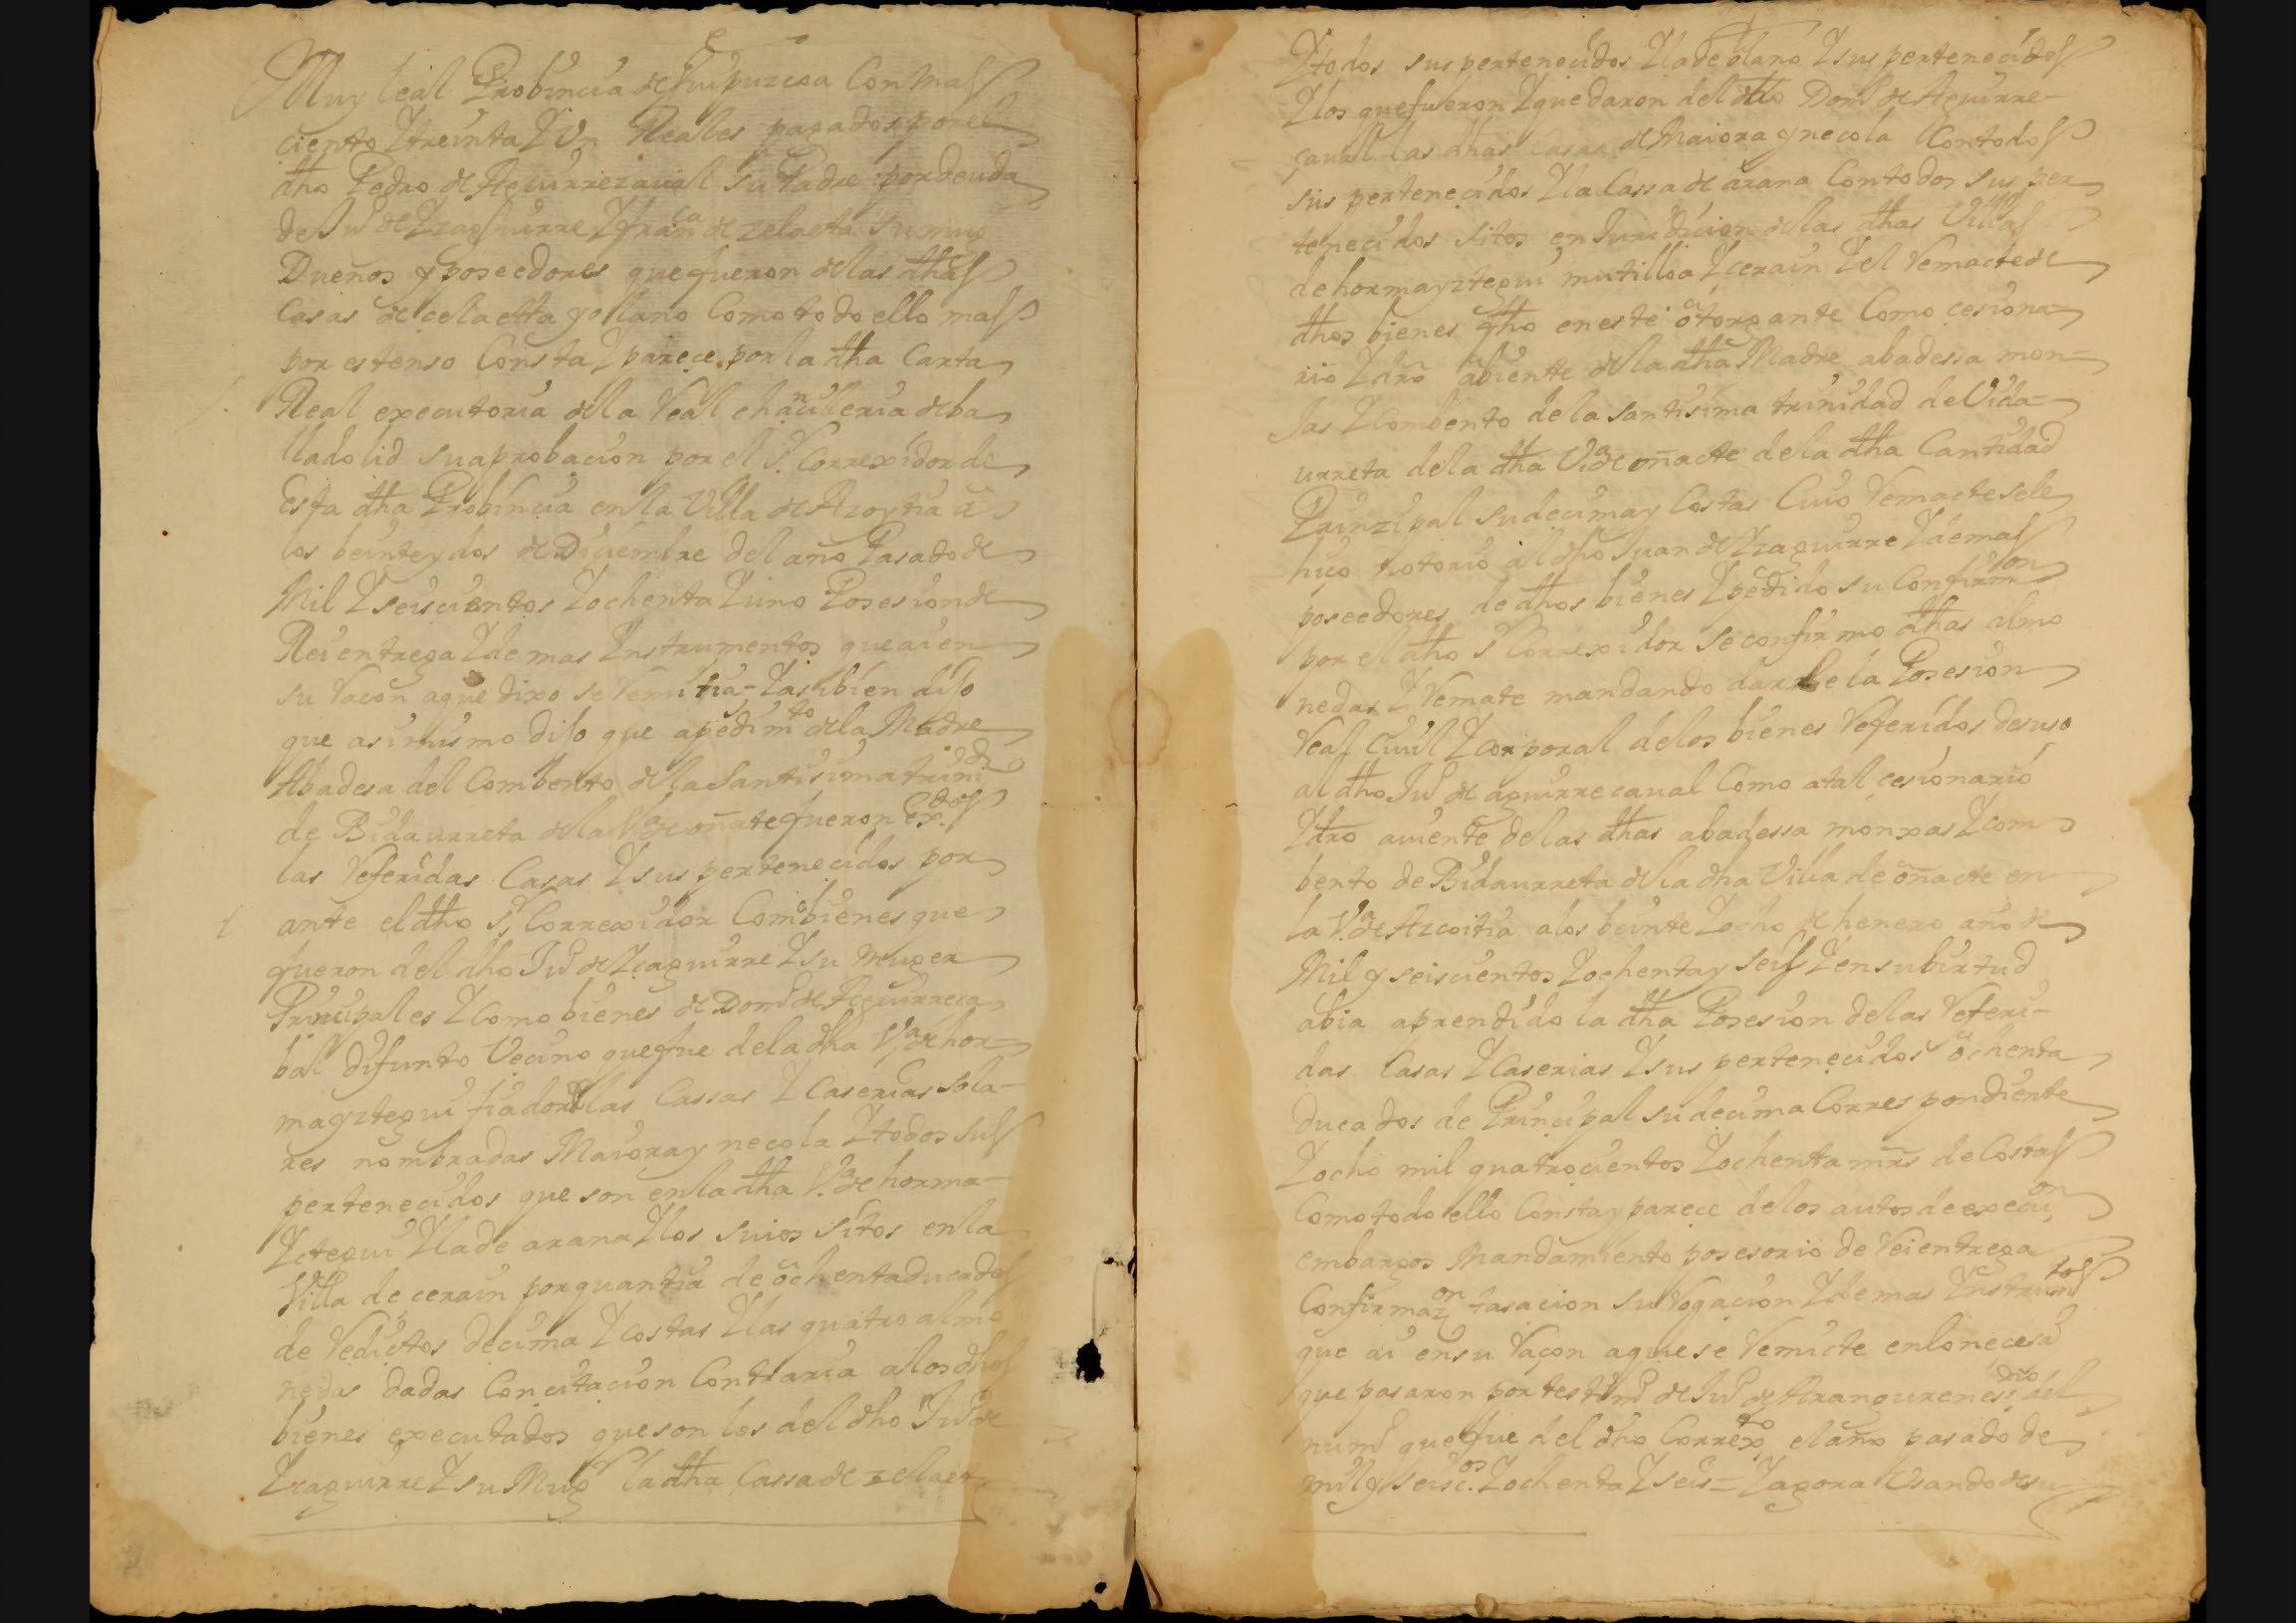 Muy leal Probincia de Guipuzcoa Con mas
ciento Y treinta Y Un Reales pagados por el
dho Pedro de Aguirrezaual su Padre por deuda
de Juº de Yzaguirre Y franca de zelaeta su muger
Dueños y poseedores que fueron de las dhas
Casas de celaetta y ollano Como todo ello mas
por estenso Consta Y parece por la dha Carta
Real executoria de la Real chancilleria de ba
lladolid su aprobacion por el Sr. Correxidor de
Esta dha Probincia en la Villa de Azoytia a
los beinte y dos de Diciembre del año Pasado de
Mil Y seiscientos Y ochenta Y uno Posesion de
Reientrega Y demas Instrumentos que ai en
su raçon a que dixo se remitia - Y asibien diso
que asimismo diso que a pedimto de la Madre
Abadesa del Combento de la Santisima trinid
de Bidaurreta de la Va de oñate fueron Exdos
las Referidas Casas Y sus pertenecidos por
ante el dho Sr Correxidor Como bienes que
fueron del dho Juº de Yçaguirre Y su muger
Principales Y Como bienes de Domº de Aguirreça
bal difunto Vecino que fue de la dha Va de hor=
mayztegui fiador las Cassas Y Caserias sola-
res nombradas Maiora y necola Y todos sus
pertenecidos que son en la dha Va de horma-
Yztegui Y la de arana Y los suios sitos en la
Villa de cerain por quantia de ochenta ducados
de Reditos decima Y costas Y las quatro almo
nedas dadas Con citacion Contraria a los dhos
bienes executados que son los del dho Juº de
Yzaguirre Y su Mugr la dha Cassa de zelaeta
Y todos sus pertenecidos Y la de ollano Y sus pertenecidos
Y los que fueron Y quedaron del dho Domº de Aguirre-
çaual las dhas Casas de Maiora y necola Con todos
sus pertenecidos Y la Cassa de arana Con todos sus per
tenecidos sitos en Jurisdicion de las dhas Villas
de hormayztegui mutilloa Y cerain Y el Remacte de
dhos bienes Yho en este otorgante Como cesiona
rio Y dro abiente de la dha Madre abadessa mon=
Jas Y Combento de la Santisima trinidad de Vida=
urreta de la dha Va de oñacte de la dha Cantidad
Prinzipal su decima y Costas Cuio Remacte se le
hiço notorio al dho Juan de Yzaguirre Y demas
poseedores de dhos bienes Y pedido su Confirmon
por el dho Sr Correxidor se confirmo dhas almo
nedas Y Remate mandando darsele la Posesion
Real Ciuil Y corporal de los bienes Referidos de suso
al dho Juº de aguirreçaual Como a tal cesionario
Y dro auiente de las dhas abadessa monxas Y com
bento de Bidaurreta de la dha Villa de oñacte en
la Va de Azcoitia a los beinte Y ocho de henero año de
Mil y seiscientos Y ochenta y seis Y en su birtud
abia aprendido la dha Posesion de las Referi-
das Casas Y Caserias Y sus pertenecidos ochenta
ducados de Principal su decima Correspondiente
Y ocho mil quatrocientos Y ochenta mrs de Costas
Como todo ello Consta y parece de los autos de execuon
embargos Mandamiento posesorio de Reientrega
Confirmazon tasacion subrogacion Y demas Instrumtos
que ai en su raçon a que se remicte en lo necesº
que pasaron por testimº de Juº de Aranguren essno del
numº que fue del dho Correxto el año pasado de
mill y seiscos Y ochenta Y seis = Y agora Usando de su